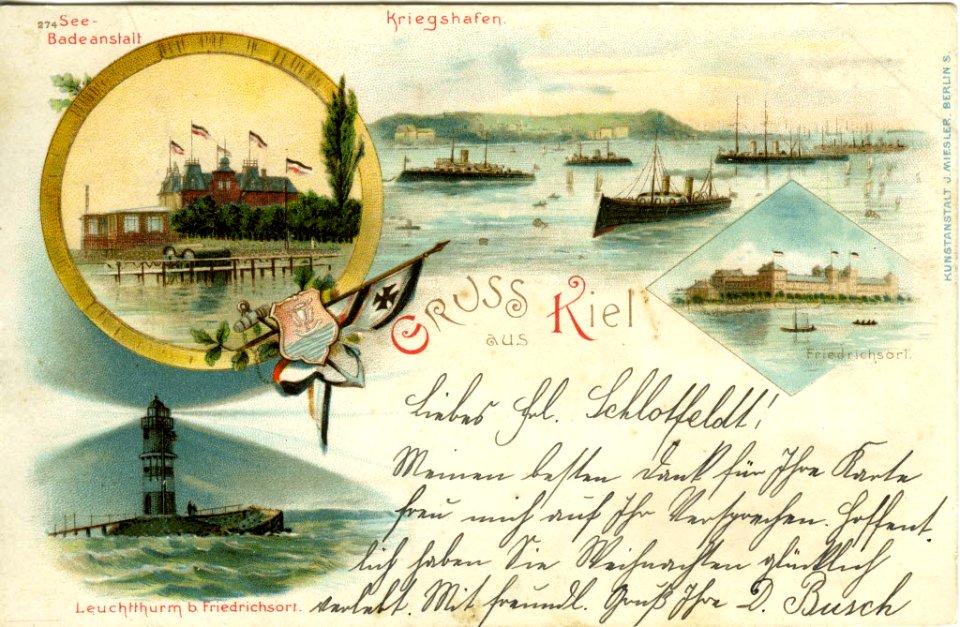 274 See-
Badeanstalt
Kriegshafen.
KUNSTANSTALT J. MIESLER, BERLIN S.
GRUSS
aus
Kiel
Friedrichsort.
Liebes Frl. Schlotfeldt!
Meinen besten Dank für Ihre Karte
freu mich auf Ihr Versprechen. Hoffent-
lich haben Sie Weihnachten glücklich
verlebt. Mit freundl. Gruß Ihre D. Busch
Leuchtthurm b. Friedrichsort.